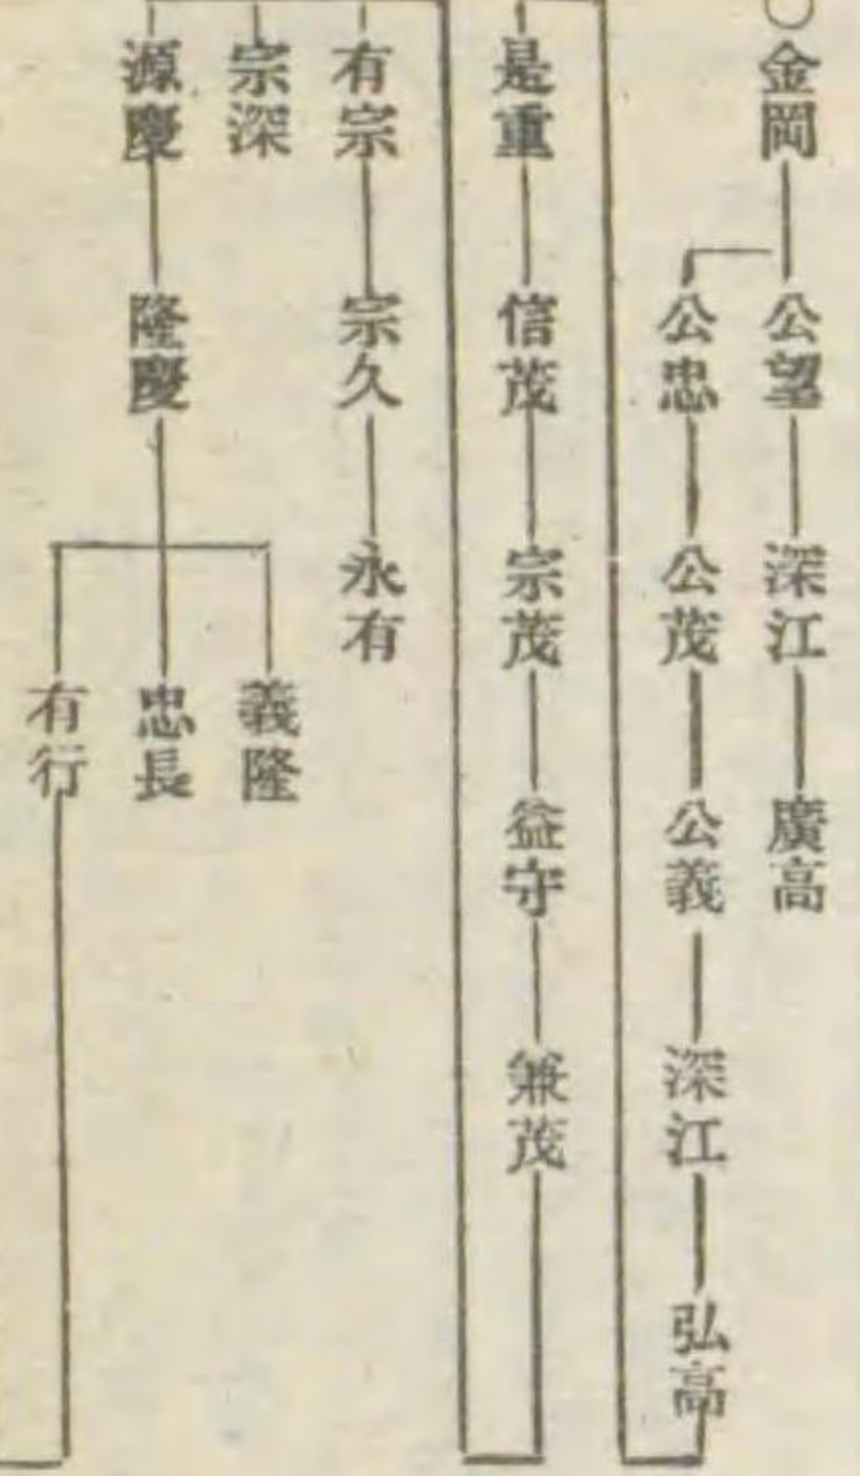 ○金岡
公望
深江
廣高
公忠
公茂
公義
深江
弘高
是重
信茂
宗茂
益守
兼茂
有宗
宗久
永有
宗深
源慶
隆慶
義隆
忠長
有行